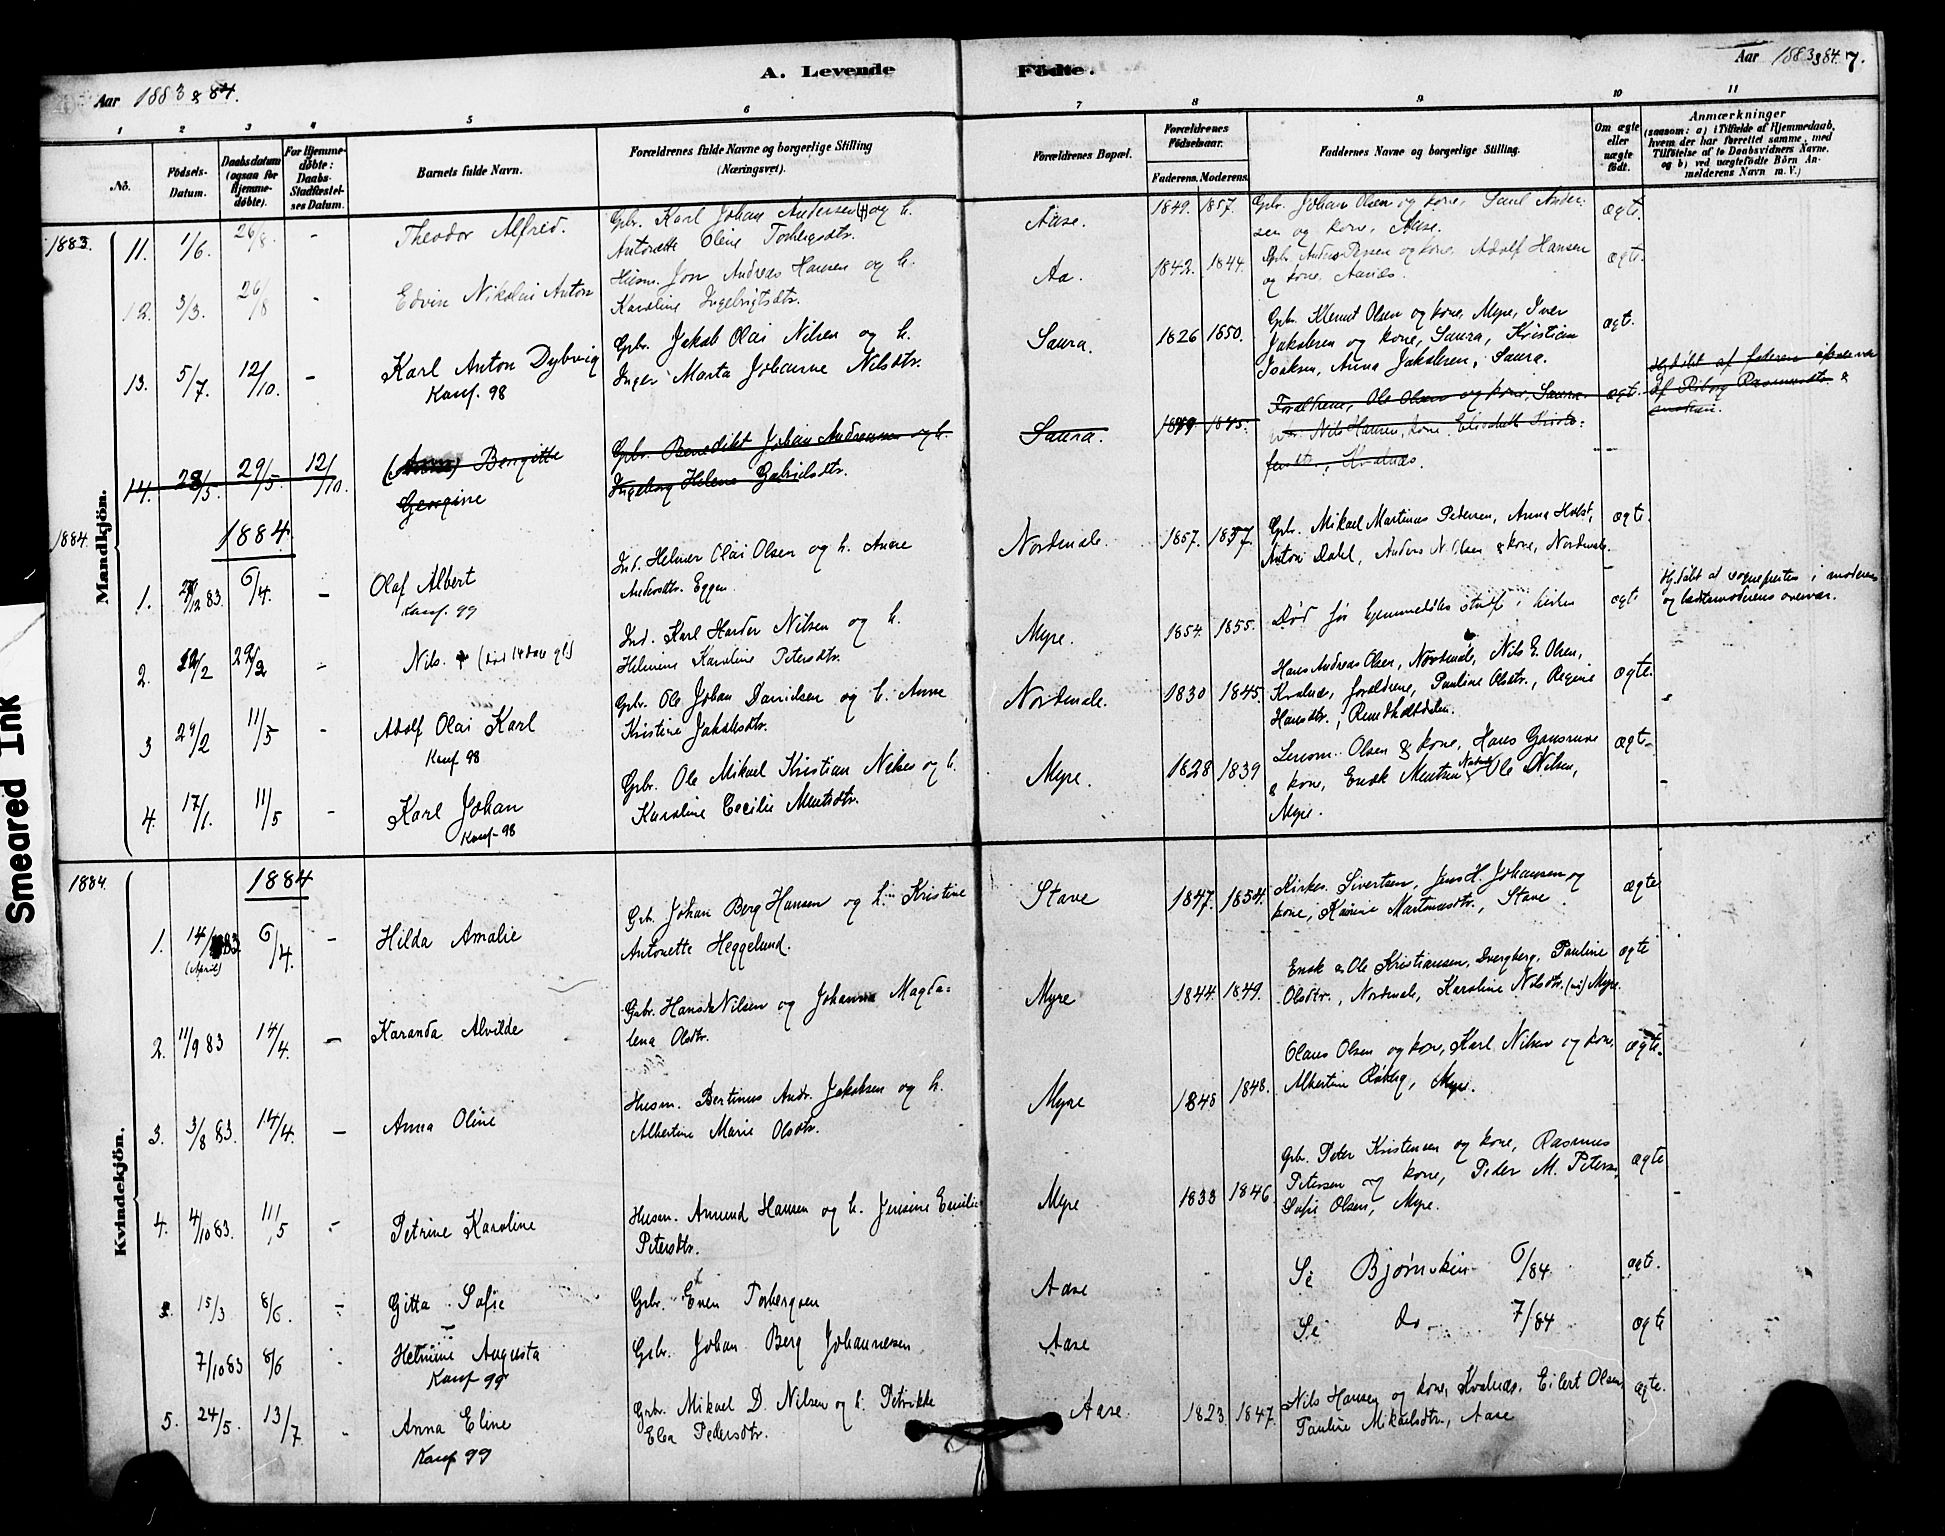 A. Levende Födte.
Aar 1883 & 84.
Aar 1883 & 84. 7.
1 2 3 4 5 6 7 8 9 10 11
No.
Födsels-Datum.
Daabsdatum (ogsaa for Hjemme-døbte).
For Hjemme-døbte: Daabs-Stadfæstel-ses Datum.
Barnets fulde Navn.
Forældrenes fulde Navne og borgerlige Stilling (Næringsvei).
Forældrenes Bopæl.
Forældrenes Födselsaar.
Faderens. Moderens.
Faddernes Navne og borgerlige Stilling.
Om ægte eller uægte født.
Anmærkninger
(saasom: a) i Tilfælde af Hjemmedaab, hvem der har forrettet samme, med Tilföielse af to Daabsvidners Navne, og b) ved uægtefödte Börn An-melderens Navn m. V.)
Mandkjön.
1883.
11. 1/6. 26/8. - Theodor Alfred. Gbr. Karl Johan Andersen og h. Aase. 1849. 1857. Gbr. Johan Olsen og kone, Paul Ander- ægte.
Antonette Oline Torbergsdtr. sen og kone, Aase.
12. 3/3. 26/8 - Edvin Nikolai Anton Husm. Jon Andreas Hansen og h. Aa. 1842. 1844. Adolf Hansen ægte.
Karoline Ingebrigtsdtr. og kone,
13. 5/7. 12/10. - Karl Anton Dybvig Gbr. Jakob Olai Nilsen og h. Saura. 1826 1850. Gbr. Klemet Olsen og kone, Myre, Iver ægt.
Konf. 98 Inger Marta Johanne Nilsdtr. Jakobsen og kone, Saura, Kristian
Isaksen, Anna Jakobsen, Saura.
14. 28/5. 29/5. 12/10. (Anna) Bergitte Gbr. Benedikt Johan Andreassen og h. Saura. Forældrene, Ole Olsen og kone, Saura. ægt.
Georgine Ingeborg Helene Gabrielsdtr. Nils Hansen, kone, Elisabeth
1884. 1884
1. /12 83. 6/4. - Olaf Albert Ind. Helmer Olai Olsen og h. Anne Nordmele. 1857. 1857. Gbr. Mikael Martinus Pedersen, Anna Holst, ægte.
Konf. 99 Andersdtr. Eggen. Anton Dahl, Anders N. Olsen & kone, Nordmele.
2. /2 29/2 - Nils. Ind. Karl Harder Nilsen og h. Myre. 1854. 1855. Død før ægte
Helmine Karoline Petersdtr.
3 29/2 11/5 - Adolf Olai Karl Gbr. Ole Johan Danielsen og h. Anne Nordmele. 1830 1845. Hans Andreas Olsen, Nordmele, Nils E. Olsen, ægte.
Konf 98 Kristine Jakobsdtr. Kvalnes, forældrene, Pauline Olsdtr., Regine
Hansdtr.,
4. 17/1. 11/5 - Karl Johan Gbr. Ole Mikael Kristian Nilsen og h. Myre. 1828 1839 Olsen & kone, Hans ægte.
Konf- 98 Karoline Cecilie Mentsdtr. & kone, Enok Mentsen, Ole Nilsen,
Myre.
Kvindekjön.
1884. 1884
1. 14/ 83. 6/4. - Hilda Amalie Gbr. Johan Berg Hansen og h. Kristine Stave 1847. 1854. Kirkes. Sivertsen, Jens H. Johansen og ægte
(April) Antonette Heggelund. kone, Karine Martinusdtr., Stave
2. 11/9 83 14/4. - Karanda Alvilde Gbr. Hans Nilsen og Johanna Magda- Myre 1844. 1849. Enok & Ole Kristiansen, Dverberg, Pauline ægte
lena Olsdtr. Olsdtr., Nordmele, Karoline Nilsdtr. Myre.
3. 3/8 83. 14/4. - Anna Oline Husm. Bertinus Andr. Jakobsen og h. Myre 1848 1848. Olaus Olsen og kone, Karl Nilsen og kone, ægte.
Albertine Marie Olsdtr. Albertine Røberg, Myre.
4. 4/10 83. 11/5 - Petrine Karoline Husm. Amund Hansen og h. Jensine Emilie Myre 1833 1846. Gbr. Peter Kristensen og kone, Rasmus ægte
Petersdtr. Petersen og kone, Peder M. Peters.
Sofie Olsen, Myre.
15/3 8/6. - Gitta Sofie Gbr. Even Torbergsen Aase Se Bjørnskin 6/84 ægt.
7/10 83 8/6 - Helmine Augusta Gbr. Johan Berg Johannesen Aase Se do 7/84 ægte
Konf 99
5. 24/5. 13/7. - Anna Eline Gbr. Mikael D. Nilsen og h. Petrikke Aase. 1823 1847. Nils Hansen og kone, Kvalnes, Eilert Olsen ægte.
Konf 99 Elea Pedersdtr. Pauline Mikaelsdtr., Aase
Smeared Ink